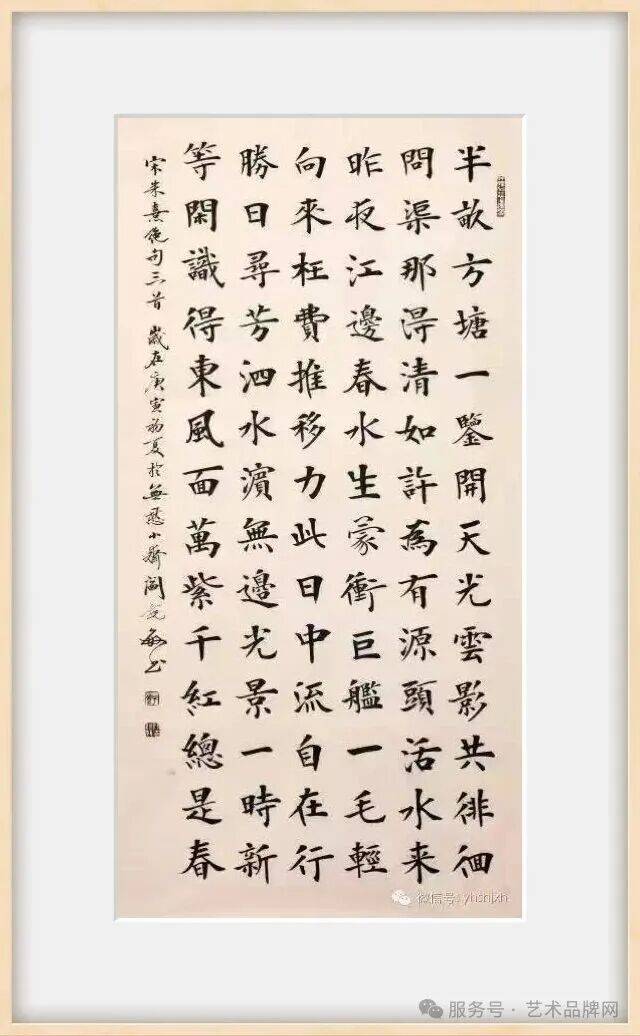 半畝方塘一鑒開天光雲影共徘徊
問渠那得清如許為有源頭活水来
昨夜江邊春水生蒙衝巨艦一毛輕
向來枉費推移力此日中流自在行
勝日尋芳泗水濱無邊光景一時新
等閑識得東風面萬紫千紅總是春
宋朱熹絶句三首 歲在庚寅初夏於無愁小齋閻敏書
微信号: yhsnljxh
服务号 · 艺术品牌网